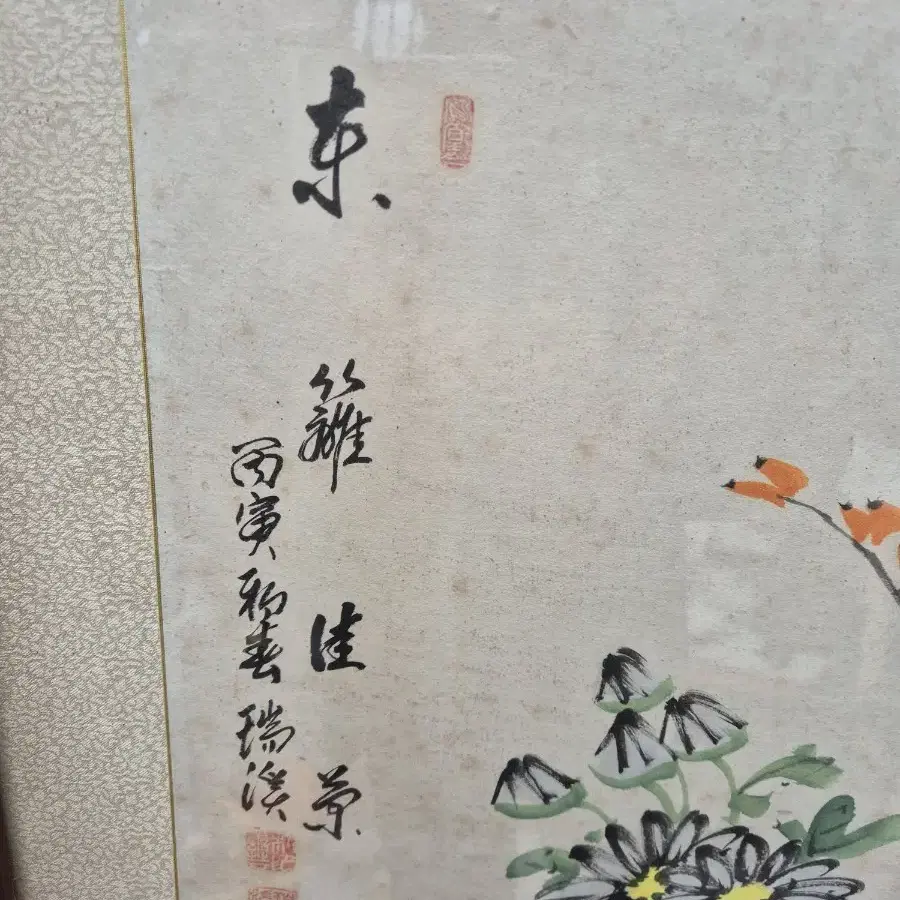 東籬佳景
丙寅初春瑞溪